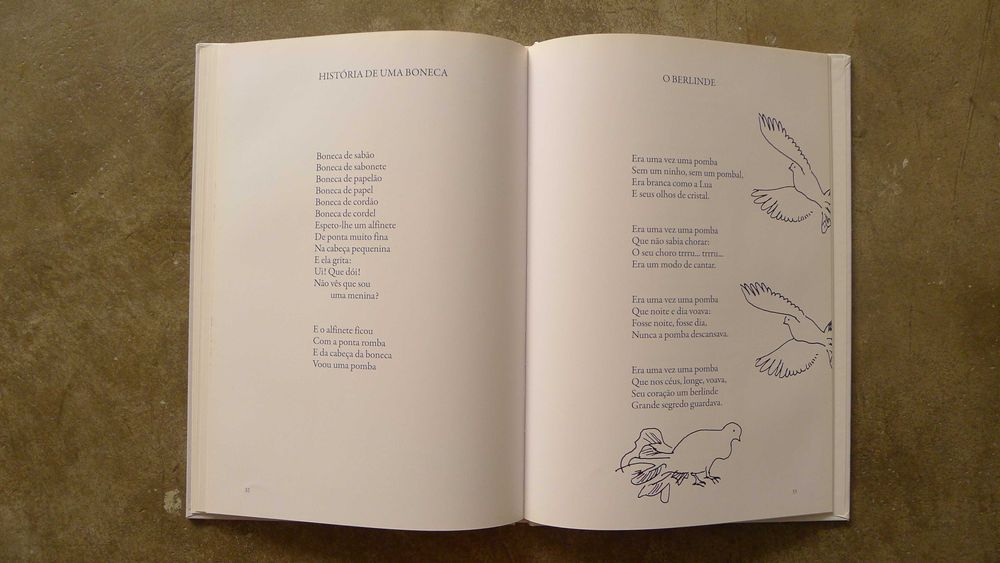 HISTÓRIA DE UMA BONECA
Boneca de sabão
Boneca de sabonete
Boneca de papelão
Boneca de papel
Boneca de cordão
Boneca de cordel
Espeto-lhe um alfinete
De ponta muito fina
Na cabeça pequenina
E ela grita:
Ui! Que dói!
Não vês que sou
uma menina?
E o alfinete ficou
Com a ponta romba
E da cabeça da boneca
Voou uma pomba
O BERLINDE
Era uma vez uma pomba
Sem um ninho, sem um pombal,
Era branca como a Lua
E seus olhos de cristal.
Era uma vez uma pomba
Que não sabia chorar:
O seu choro trrru... trrru...
Era um modo de cantar.
Era uma vez uma pomba
Que noite e dia voava:
Fosse noite, fosse dia,
Nunca a pomba descansava.
Era uma vez uma pomba
Que nos céus, longe, voava,
Seu coração um berlinde
Grande segredo guardava.